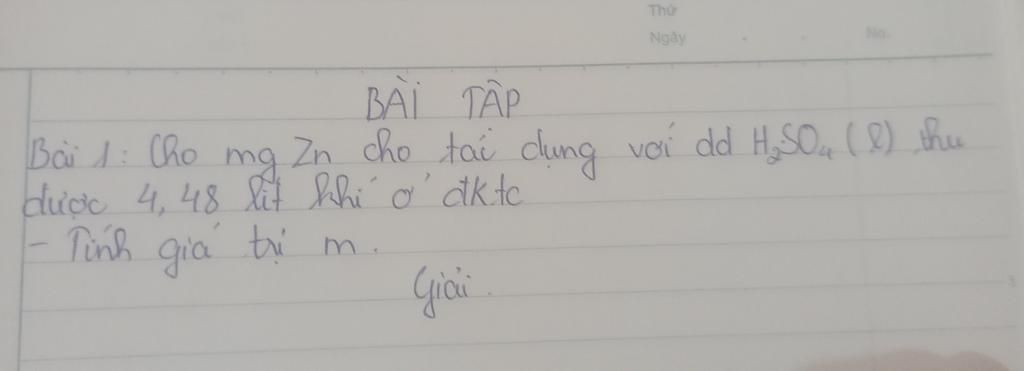 Thứ
Ngày
No.
BÀI TẬP
Bài 1: Cho mg Zn cho tác dụng với dd H₂SO₄ (l) thu
được 4,48 lít khí ở đktc
- Tính giá trị m.
Giải.